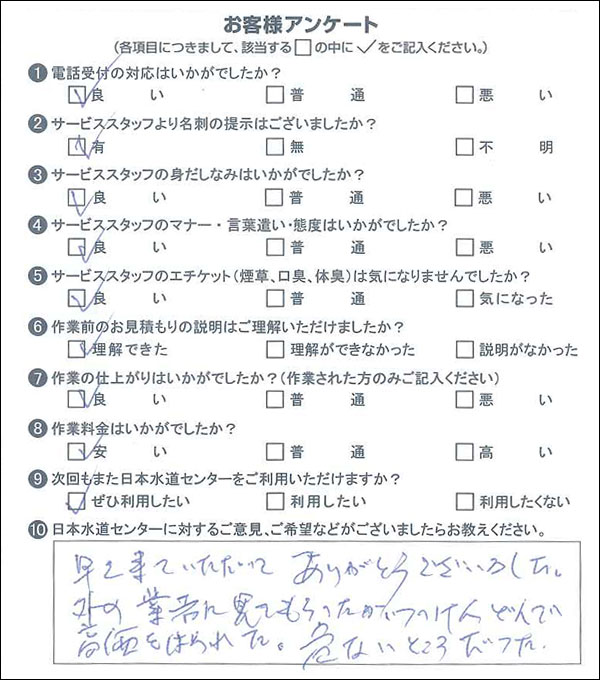 お客様アンケート
(各項目につきまして、該当する□の中に✓をご記入ください。)
❶ 電話受付の対応はいかがでしたか?
☑良い □普通 □悪い
❷ サービススタッフより名刺の提示はございましたか?
☑有 □無 □不明
❸ サービススタッフの身だしなみはいかがでしたか?
☑良い □普通 □悪い
❹ サービススタッフのマナー・言葉遣い・態度はいかがでしたか?
☑良い □普通 □悪い
❺ サービススタッフのエチケット(煙草、口臭、体臭)は気になりませんでしたか?
☑良い □普通 □気になった
❻ 作業前のお見積もりの説明はご理解いただけましたか?
☑理解できた □理解ができなかった □説明がなかった
❼ 作業の仕上がりはいかがでしたか?(作業された方のみご記入ください)
☑良い □普通 □悪い
❽ 作業料金はいかがでしたか?
☑安い □普通 □高い
❾ 次回もまた日本水道センターをご利用いただけますか?
☑ぜひ利用したい □利用したい □利用したくない
❿ 日本水道センターに対するご意見、ご希望などがございましたらお教えください。
早く来ていただいて ありがとうございました。
外の業者に見てもらったが
高価をはられた。危ないところだった.